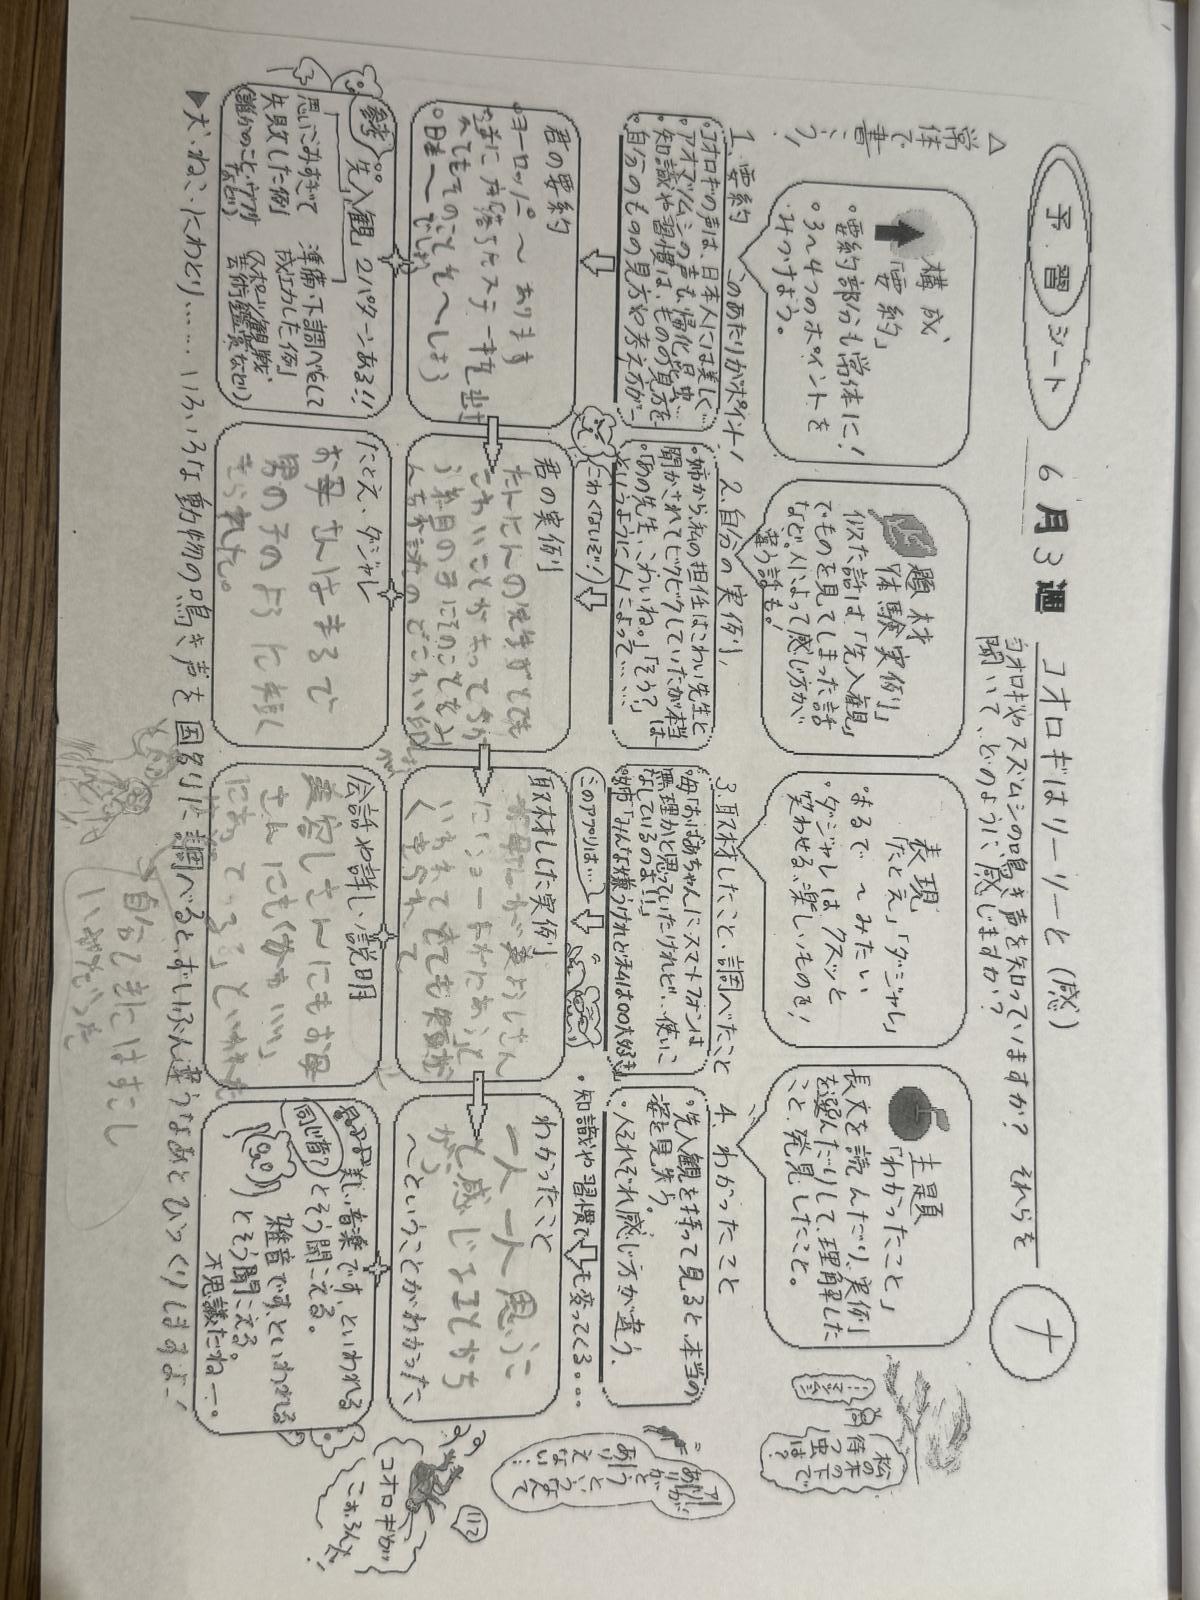 予習シート
6月3週
コオロギはリーリーと(感)
ナ
◎コオロギやスズムシの鳴き声を知っていますか？それらを
聞いて、どのように感じますか？
△常体で書こう
構成
「要約」
・要約部分も常体に！
・3〜4つのポイントを
みつけよう。
題材
「体験実例」
似た話は「先入観」
でものを見てしまった話
など。人によって感じ方が
違う話も！
表現
「たとえ」「ダジャレ」
・まるで〜みたい
・ダジャレはクスッと
笑わせる、楽しいものを！
主題
「わかったこと」
長文を読んだり、実例
を選んだりして、理解した
こと、発見したこと。
松の木の下で
待つ虫は？
1. 要約
のあたりがポイント！
・コオロギの声は、日本人には美しく…
・アオマツムシの声も、帰化昆虫…
・知識や習慣は、ものの見方を…
・自分のものの見方や考え方が…
2. 自分の実例
・姉から、私の担任はこわい先生と
聞かされてビクビクしていたが本当は
・「あの先生、こわいね。」「そう？」
というように人によって……
3. 取材したこと、調べたこと
・母「おばあちゃんにスマートフォンは
無理かと思っていたけれど…使いこ
なしているのよ！！」
・姉「みんな嫌うけれど私は〇〇大好き」
4. わかったこと
・先入観を持って見ると、本当の
姿を見失う。
・人それぞれ感じ方が違う。
・知識や習慣でも変ってくる…
こわくないぞ！
このアプリは…
君の要約
・ヨーロッパ〜あります
・日本〜でしょう
君の実例
取材した実例
わかったこと
一人一人思うこ
とや感じることがち
がう
〜ということがわかった
参考
先入観 2パターンある！！
思いこみすぎて
失敗した例
(誰かのこと、ウワサ
など)
準備、下調べをして
成功した例
(スポーツ観戦、
芸術鑑賞など)
たとえ・ダジャレ
お母さんはまるで
男の子のように短く
きられた。
会話や詳しい説明
美容しさんにもお母
さんにも「かわいい」
にあっている」といわれた
美しい音楽です、といわれる
とそう聞こえる。
同じ音
雑音です、といわれる
とそう聞こえる。
不思議だねー。
コオロギが
こおろんだ！！
▶犬、ねこ、にわとり……いろいろな動物の鳴き声を国別に調べるとずいぶん違うなあとびっくりしますよ！
自分てきにはすこし
いやだった